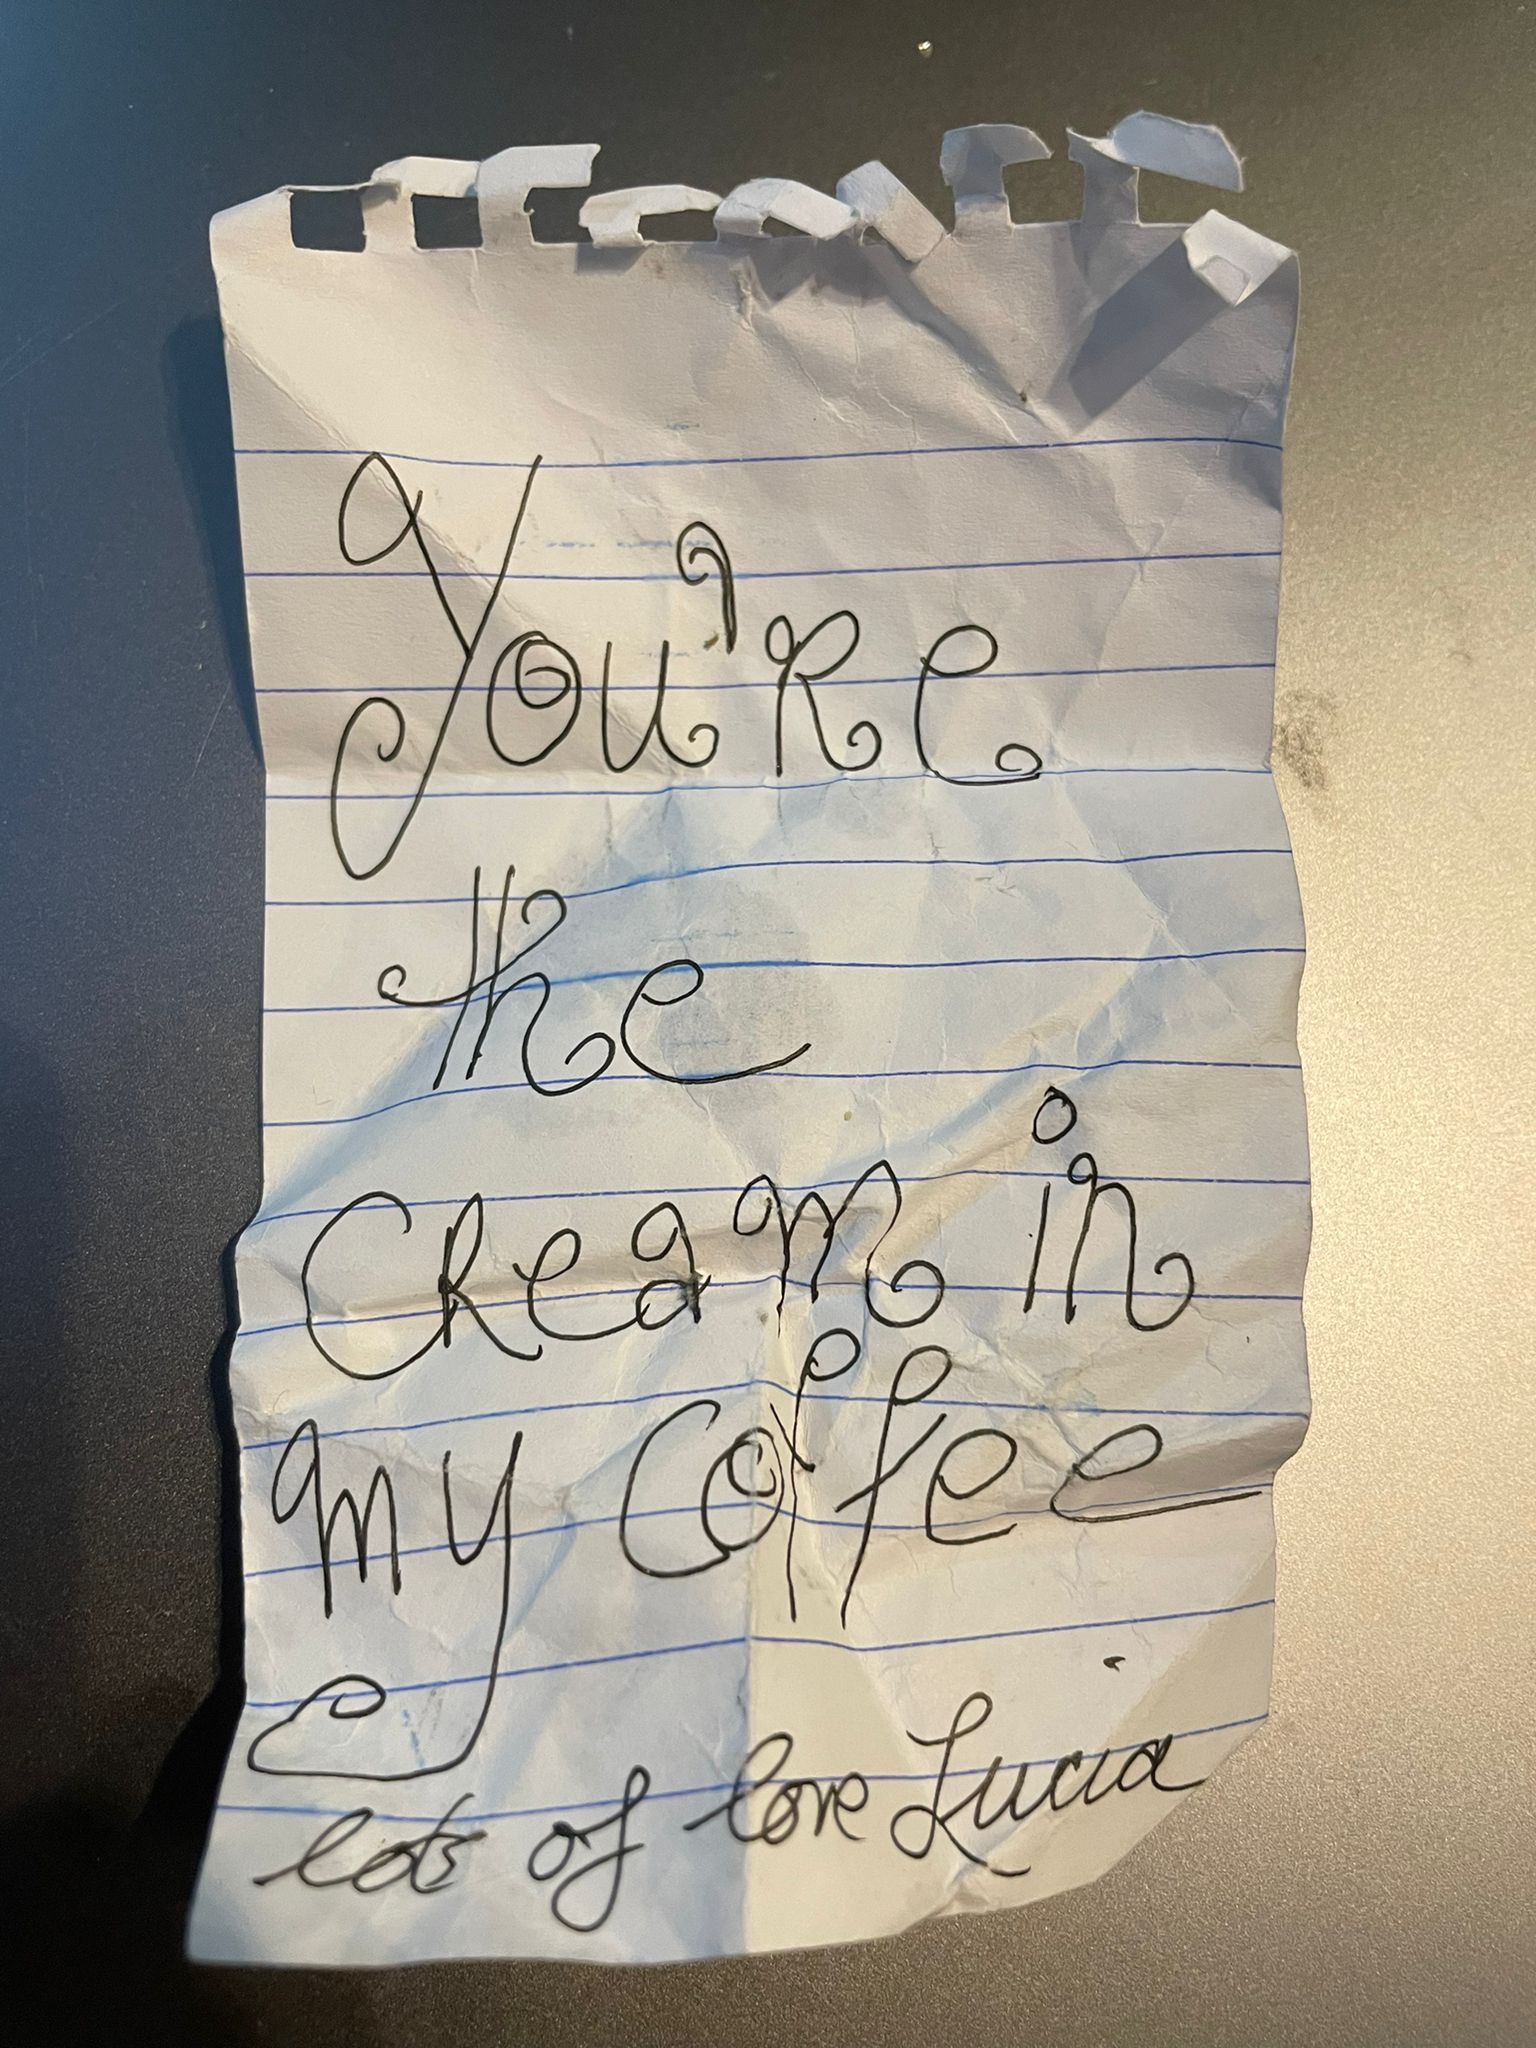 You're
the
Cream in
my Coffee
lots of love Lucia